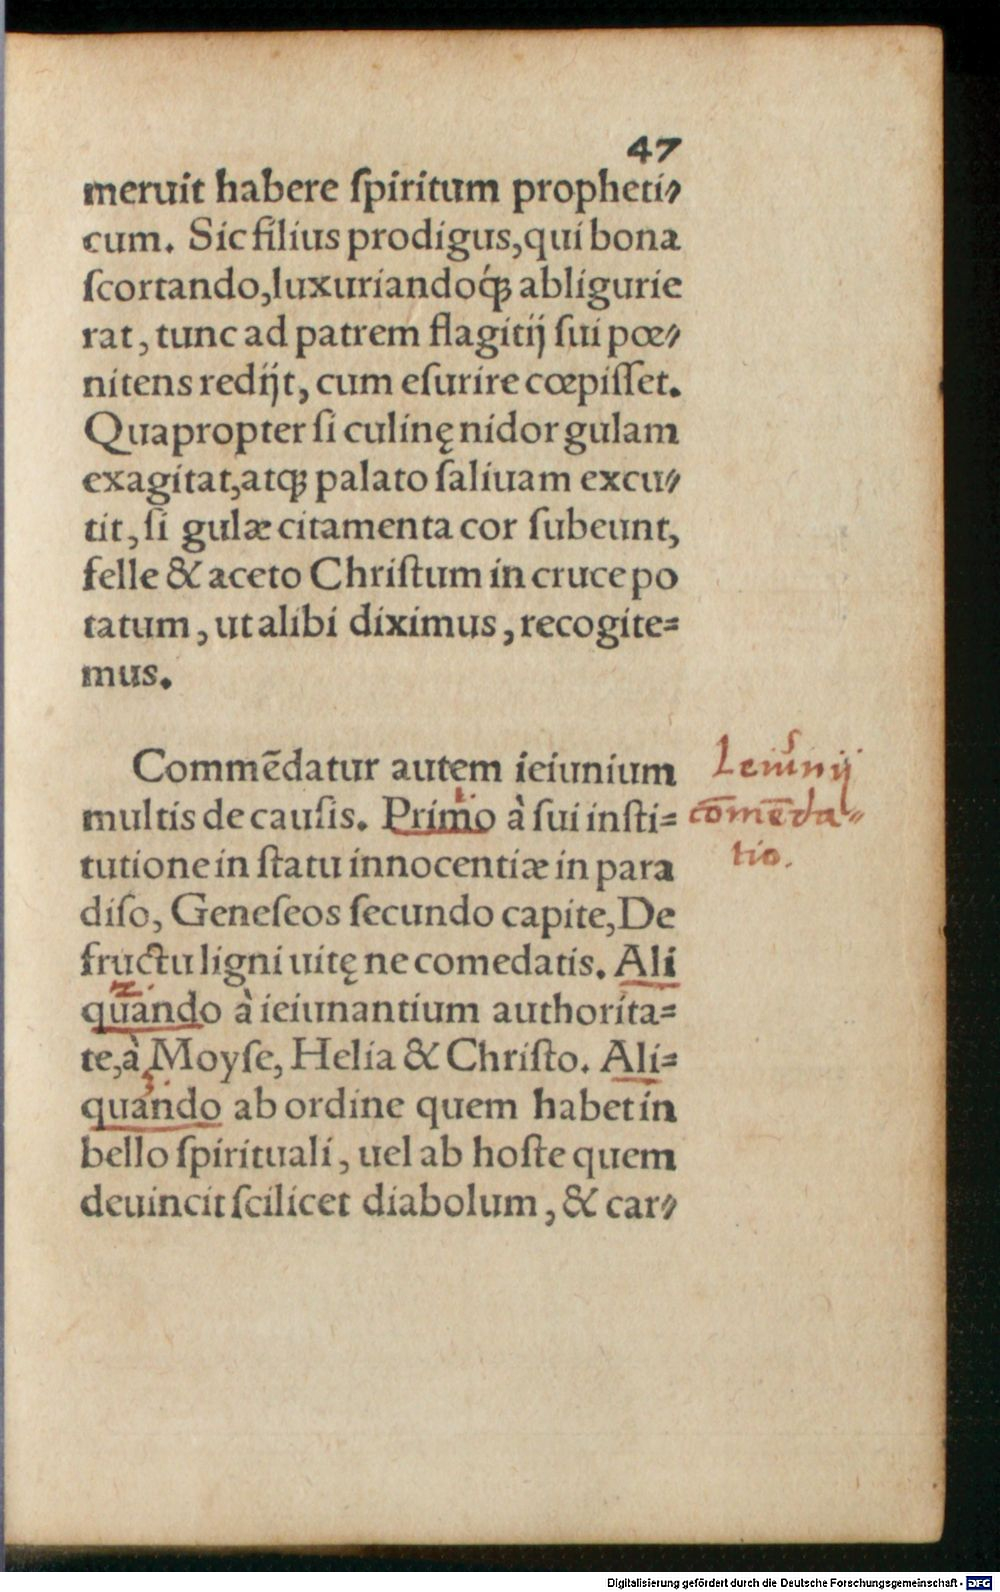 47
meruit habere ſpiritum propheti⸗
cum. Sic filius prodigus, qui bona
ſcortando, luxuriandoq́ꝫ abligurie
rat, tunc ad patrem flagitij ſui pœ⸗
nitens redijt, cum eſurire cœpiſſet.
Quapropter ſi culinę nidor gulam
exagitat, atqꝫ palato ſaliuam excu⸗
tit, ſi gulæ citamenta cor ſubeunt,
felle & aceto Chriſtum in cruce po
tatum, ut alibi diximus, recogite=
mus.
Commēdatur autem ieiunium
multis de cauſis. Primo à ſui inſti=
tutione in ſtatu innocentiæ in para
diſo, Geneſeos ſecundo capite, De
fructu ligni uitę ne comedatis. Ali
quando à ieiunantium authorita=
te, à Moyſe, Helia & Chriſto. Ali=
quando ab ordine quem habet in
bello ſpirituali, uel ab hoſte quem
deuincit ſcilicet diabolum, & car⸗
Ieiunij
cōmēda⸗
tio.
1.
2.
3.
Digitalisierung gefördert durch die Deutsche Forschungsgemeinschaft - DFG